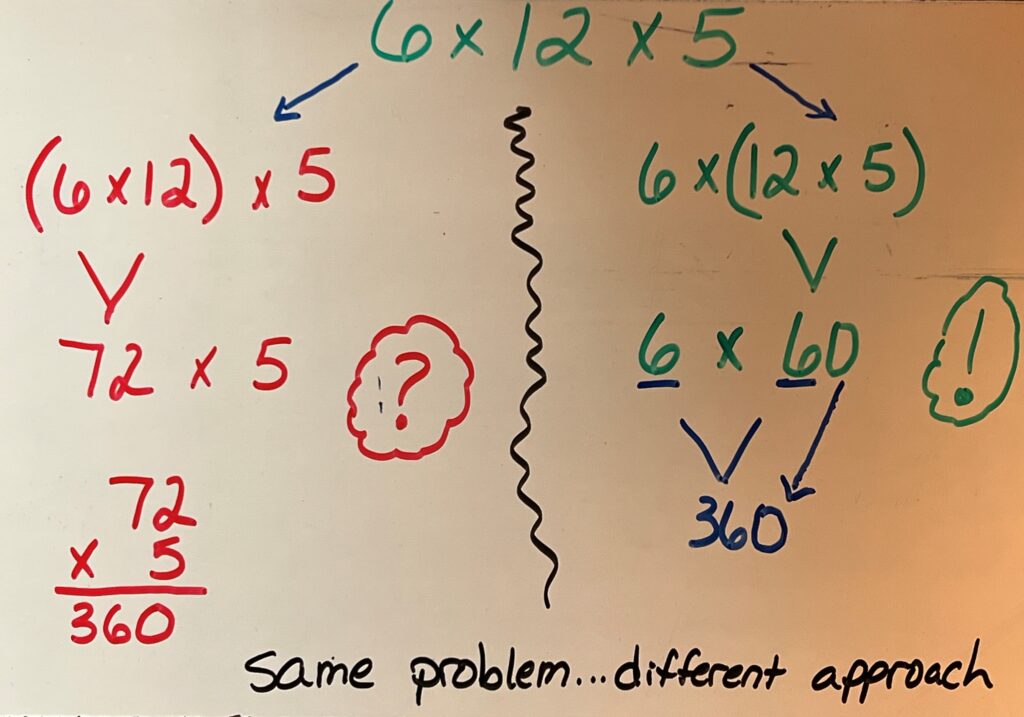 6 x 12 x 5
(6 x 12) x 5
72 x 5
?
72
x 5
360
6 x (12 x 5)
6 x 60
!
360
same problem...different approach